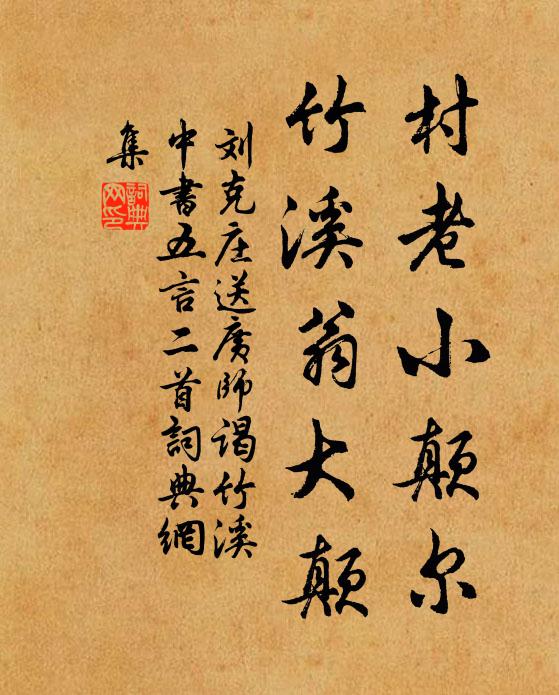 村老小颠尔
竹溪翁大颠
刘克庄送广师谒竹溪
中書五言二首詞典網
集
詞典
网印